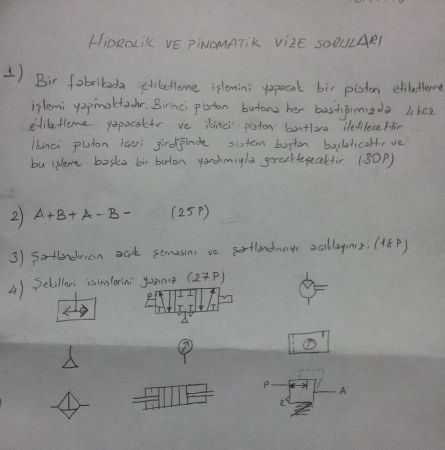 HIDROLİK VE PINOMATİK VİZE SORULARI
1) Bir fabrikada etiketleme işlemini yapacak bir piston etiketleme
işlemi yapmaktadır. Birinci piston butona her bastığımızda 4 kez
etiketleme yapacaktır ve ikinci piston bantlara iletilecektir
İkinci piston içeri girdiğinde sistem baştan başlatıcaktır ve
bu işleme başka bir buton yardımıyla gerçekteşecektir. (30P)
2) A+B+A-B- (25P)
3) Şartlandırıcın açık şemasını ve şartlandırıcıyı açıklayınız. (18P)
4) Şekilleri isimlerini yazınız (27P)
P A